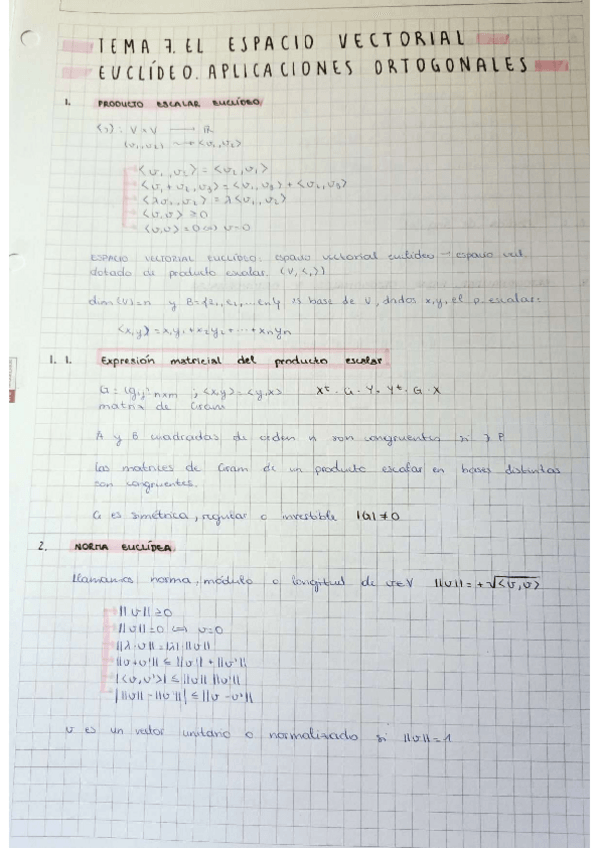 TEMA 7. EL ESPACIO VECTORIAL
EUCLÍDEO. APLICACIONES ORTOGONALES
1. PRODUCTO ESCALAR EUCLÍDEO
<,>: V×V → ℝ
(v₁,v₂) ⇝ <v₁,v₂>
<v₁,v₂> = <v₂,v₁>
<v₁+v₂,v₃> = <v₁,v₃> + <v₂,v₃>
<λv₁,v₂> = λ<v₁,v₂>
<v,v> ≥ 0
<v,v> = 0 ⇔ v=0
ESPACIO VECTORIAL EUCLÍDEO: espacio vectorial euclídeo → espacio vect.
dotado de producto escalar. (V,<,>)
dim(V)=n y B={e₁,e₂,...en} es base de V, dados x,y, el p. escalar:
<x,y> = x₁y₁+x₂y₂+...+xnyn
1. 1. Expresión matricial del producto escalar
G = (gij) n×n ; <x,y> = <y,x> Xᵗ·G·Y = Yᵗ·G·X
matriz de Gram
A y B cuadradas de orden n son congruentes si ∃ P
Las matrices de Gram de un producto escalar en bases distintas
son congruentes.
G es simétrica, regular o invertible |G| ≠ 0
2. NORMA EUCLÍDEA
Llamamos norma, módulo o longitud de v∈V ||v|| = +√<v,v>
||v|| ≥ 0
||v|| = 0 ⇔ v=0
||λ·v|| = |λ|·||v||
||v+v'|| ≤ ||v|| + ||v'||
|<v,v'>| ≤ ||v|| ||v'||
| ||v|| - ||v'|| | ≤ ||v-v'||
v es un valor unitario o normalizado si ||v|| = 1